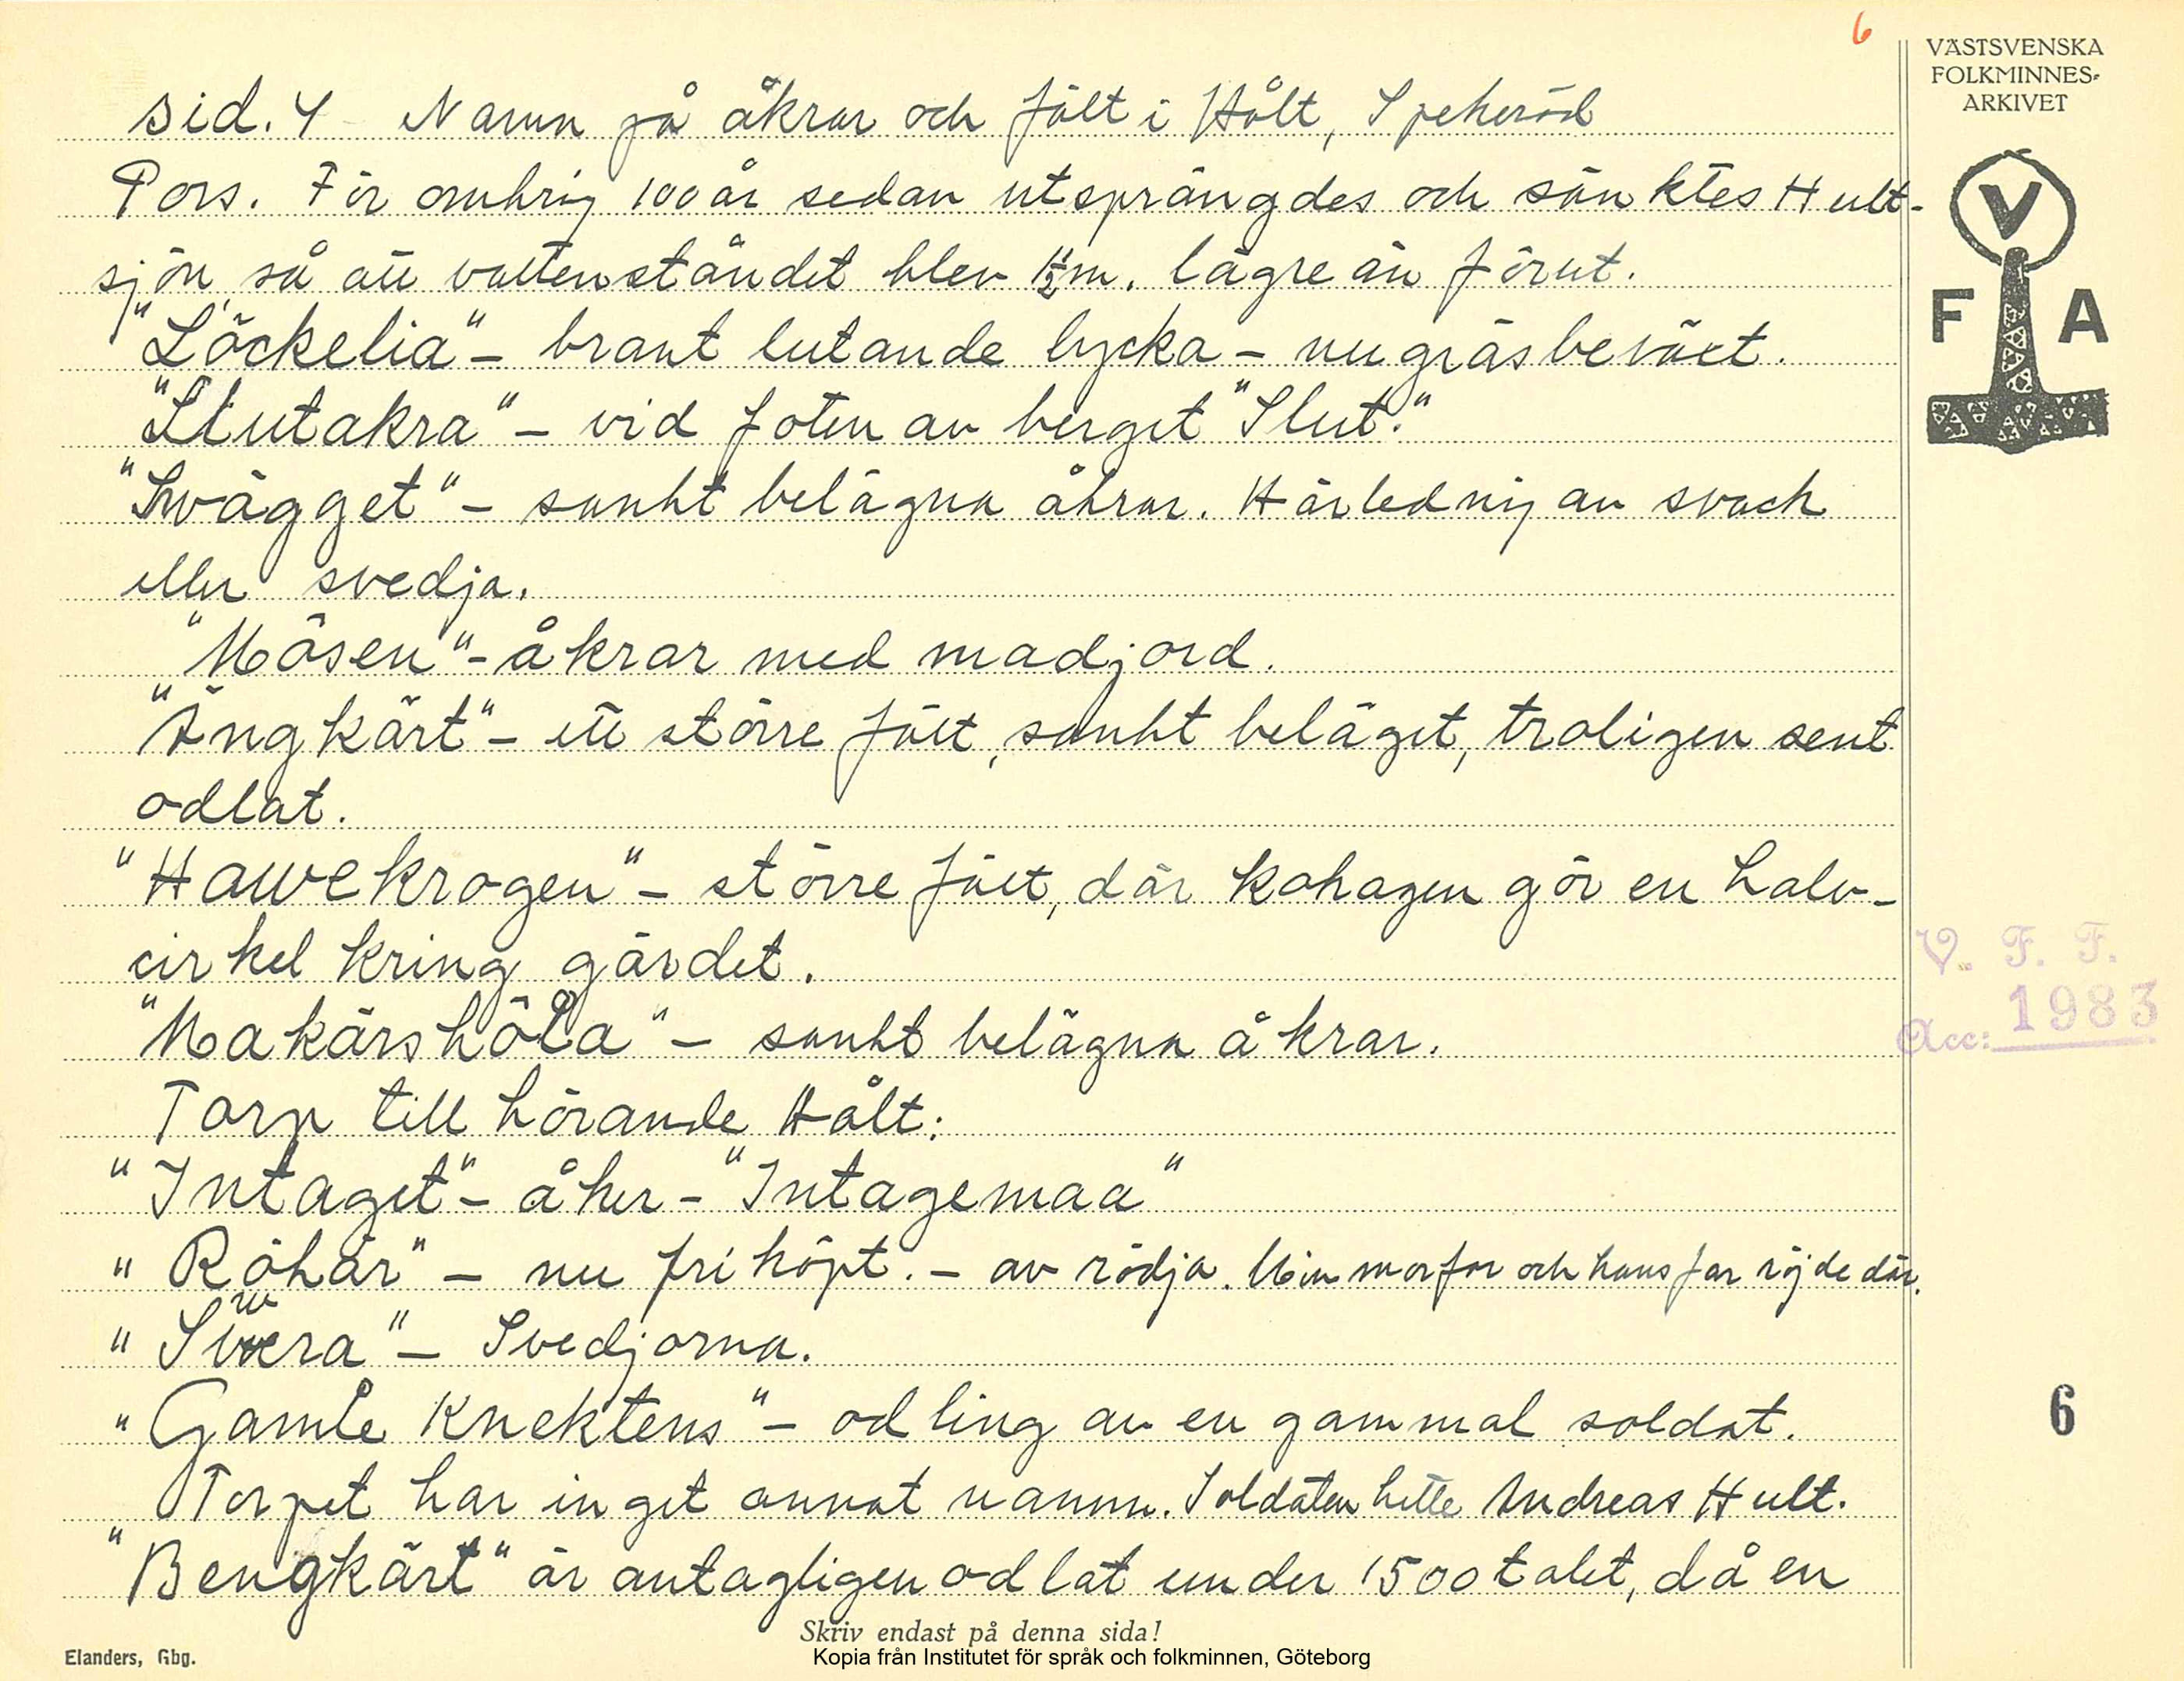 6
VÄSTSVENSKA
FOLKMINNES-
ARKIVET
V
F A
sid. 4 Namn på åkrar och fält i Hålt, Spekeröd
Pors. För omkring 100 år sedan utsprängdes och sänktes Hult-
sjön så att vattenståndet blev 1½ m. lägre än förut.
"Löckelia" – brant lutande lycka – nu gräsbeväxt.
"Slutakra" – vid foten av berget "Slut."
"Swägget" – sankt belägna åkrar. Härledning av svack
eller svedja.
"Mösen" – åkrar med madjord.
"Ängkärt" – ett större fält, sankt beläget, troligen sent
odlat.
"Hawekrogen" – större fält, där kohagen gör en halv-
cirkel kring gärdet.
"Makärshöla" – sankt belägna åkrar.
Torp till hörande Hålt:
"Intaget" – åker – "Intagemaa"
"Röhär" – nu friköpt. – av rödja. Min morfar och hans far röjde där.
"Swera" – Svedjorna.
"Gamle Knektens" – odling av en gammal soldat.
Torpet har inget annat namn. Soldaten hette Andreas Hult.
"Bengkärt" är antagligen odlat under 1500 talet, då en
V. F. F.
Acc: 1983
6
Skriv endast på denna sida!
Elanders, Gbg.
Kopia från Institutet för språk och folkminnen, Göteborg